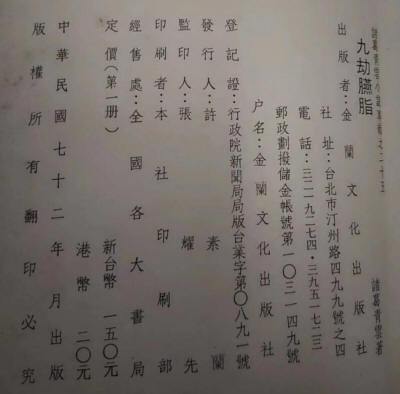 諸葛青雲小說專輯之二十五
九劫臙脂
諸葛青雲著
出版者：金蘭文化出版社
社址：台北市汀州路四九九號之四
電話：三二一九二七四·三九五一七二三
郵政劃撥儲金帳號第一〇三一四九號
戶名：金蘭文化出版社
登記證：行政院新聞局局版台業字第〇八九一號
發行人：許素蘭
監印人：張耀先
印刷者：本社印刷部
經售處：全國各大書局
定價（第一册）
新台幣 一五〇元
港幣 二〇元
中華民國七十二年 月出版
版權所有翻印必究